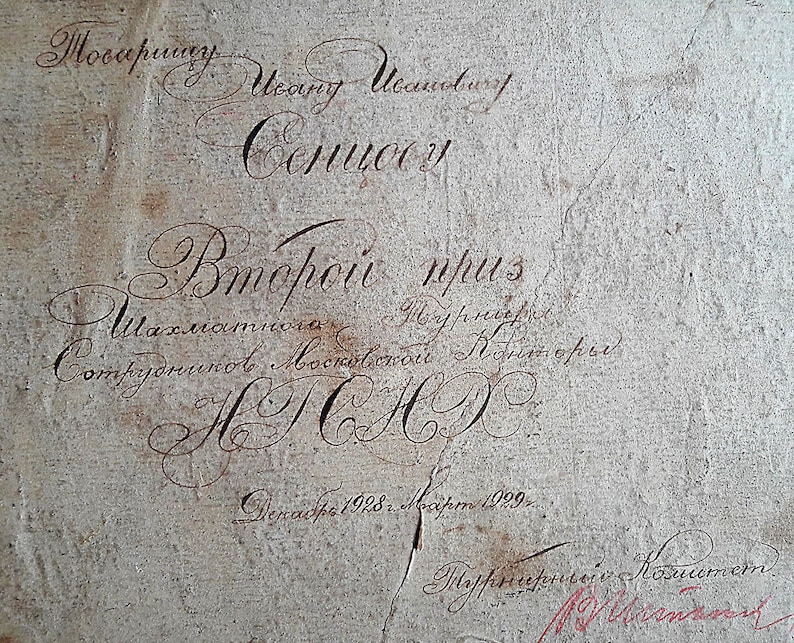 Товарищу
Ивану Ивановичу
Сенцову
Второй приз
Шахматного Турнира
Сотрудников Московской Конторы
Декабрь 1928 г. Март 1929 г.
Турнирный Комитет